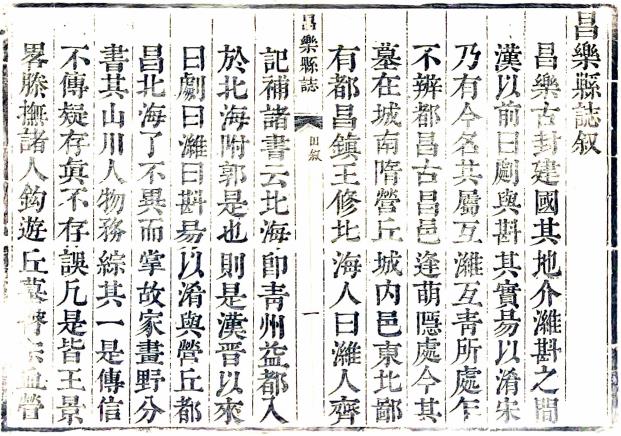 昌樂縣誌叙
昌樂古封建國其地介濰斟之間
漢以前曰劇與斟其實易以淆宋
乃有今名其屬互濰互青所處乍
不辨都昌古昌邑逢萌隱處今其
墓在城南隋營丘城内邑東北鄙
有都昌鎮王修北海人曰濰人齊
昌樂縣誌
田叙
一
記補諸書云北海卽青州益都人
於北海附郭是也則是漢晉以來
曰劇曰濰曰斟易以淆與營丘都
昌北海了不異而掌故家畫野分
書其山川人物務綜其一是傳信
不傳疑存眞不存誤凡是皆王景
畧滕撫諸人鈎遊丘墓營